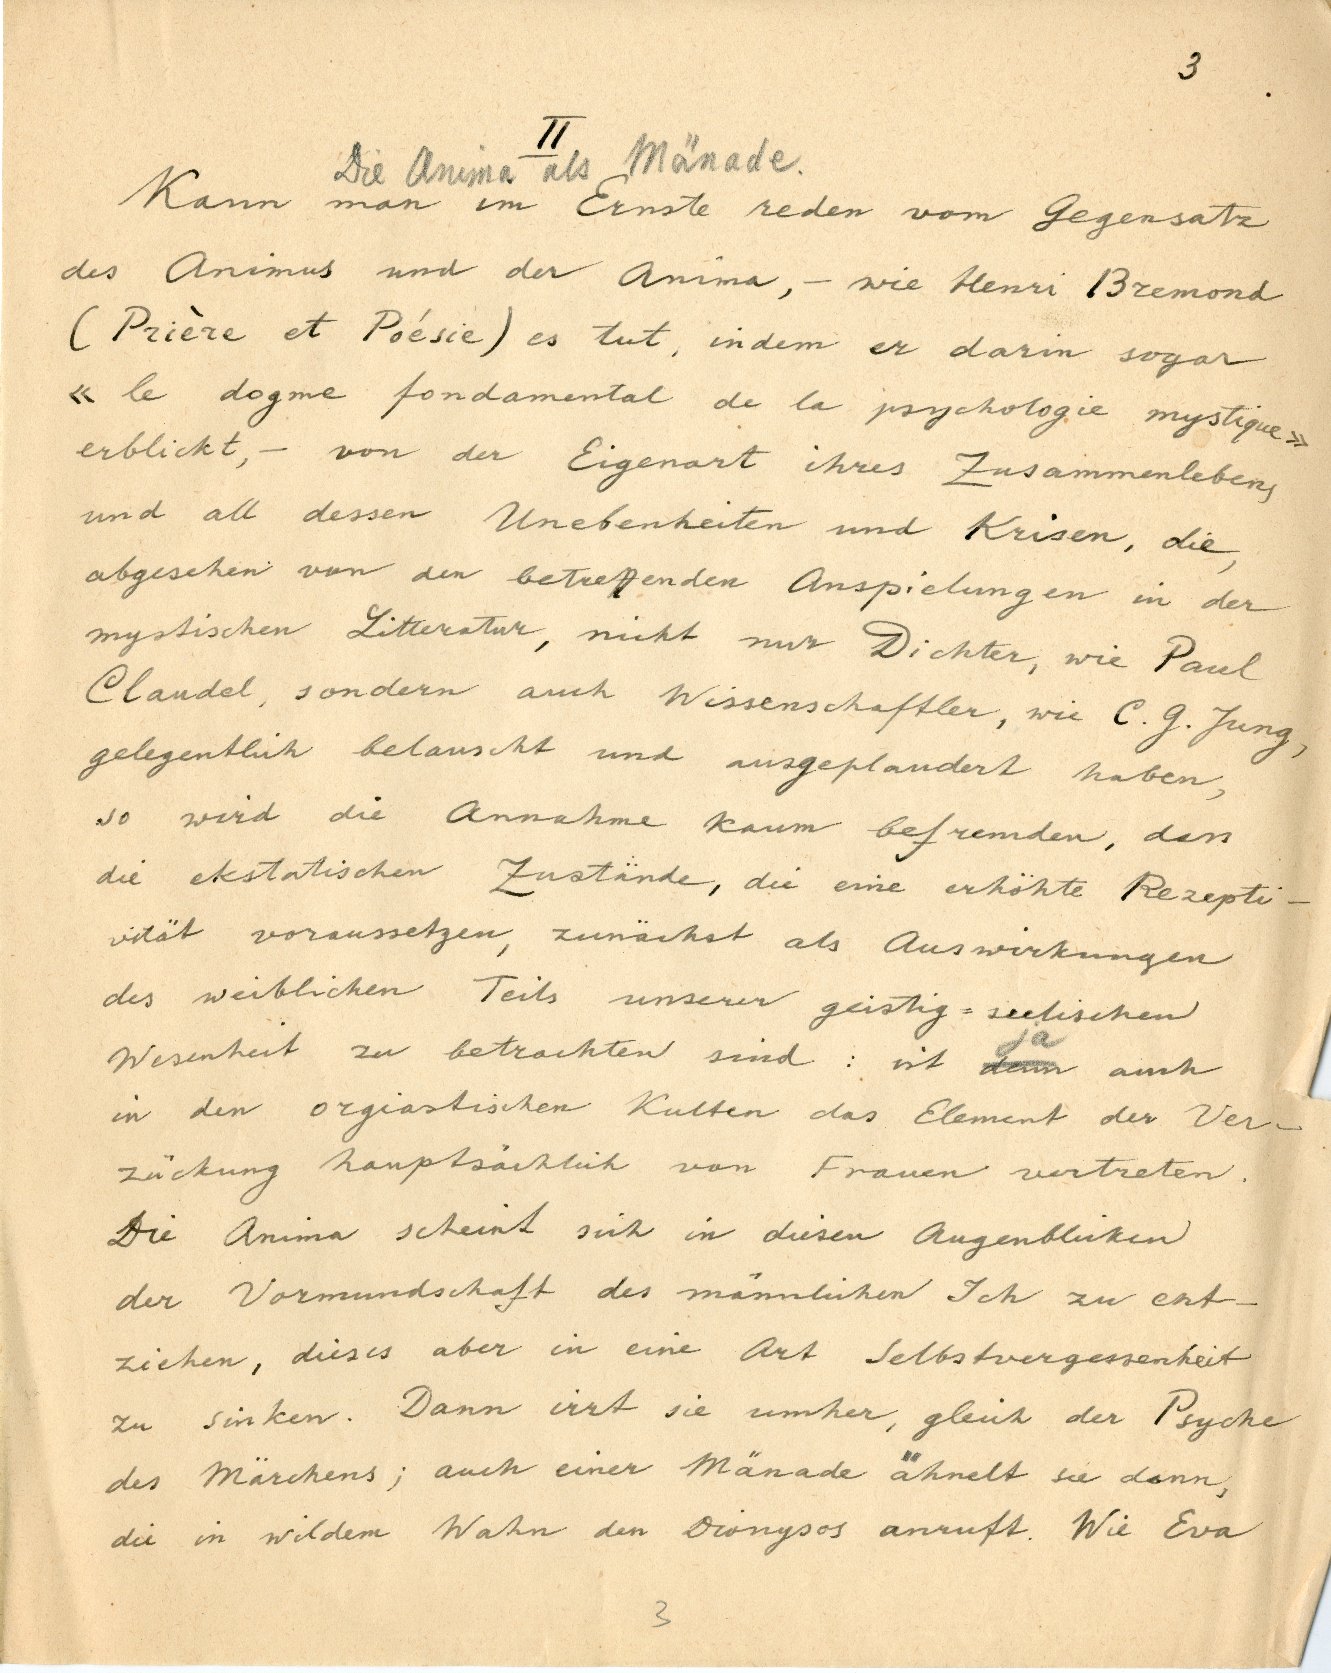 3
II
Die Anima als Mänade.
Kann man im Ernste reden vom Gegensatz
des Animus und der Anima, – wie Henri Bremond
(Prière et Poésie) es tut, indem er darin sogar
« le dogme fondamental de la psychologie mystique »
erblickt, – von der Eigenart ihres Zusammenlebens
und all dessen Unebenheiten und Krisen, die,
abgesehen von den betreffenden Anspielungen in der
mystischen Litteratur, nicht nur Dichter, wie Paul
Claudel, sondern auch Wissenschaftler, wie C. G. Jung,
gelegentlich belauscht und ausgeplaudert haben,
so wird die Annahme kaum befremden, dass
die ekstatischen Zustände, die eine erhöhte Rezepti-
vität voraussetzen, zunächst als Auswirkungen
des weiblichen Teils unserer geistig=seelischen
Wesenheit zu betrachten sind : ist denn ja auch
in den orgiastischen Kulten das Element der Ver-
zückung hauptsächlich von Frauen vertreten.
Die Anima scheint sich in diesen Augenblicken
der Vormundschaft des männlichen Ich zu ent-
ziehen, dieses aber in eine Art Selbstvergessenheit
zu sinken. Dann irrt sie umher, gleich der Psyche
des Märchens; auch einer Mänade ähnelt sie dann,
die in wildem Wahn den Dionysos anruft. Wie Eva
3